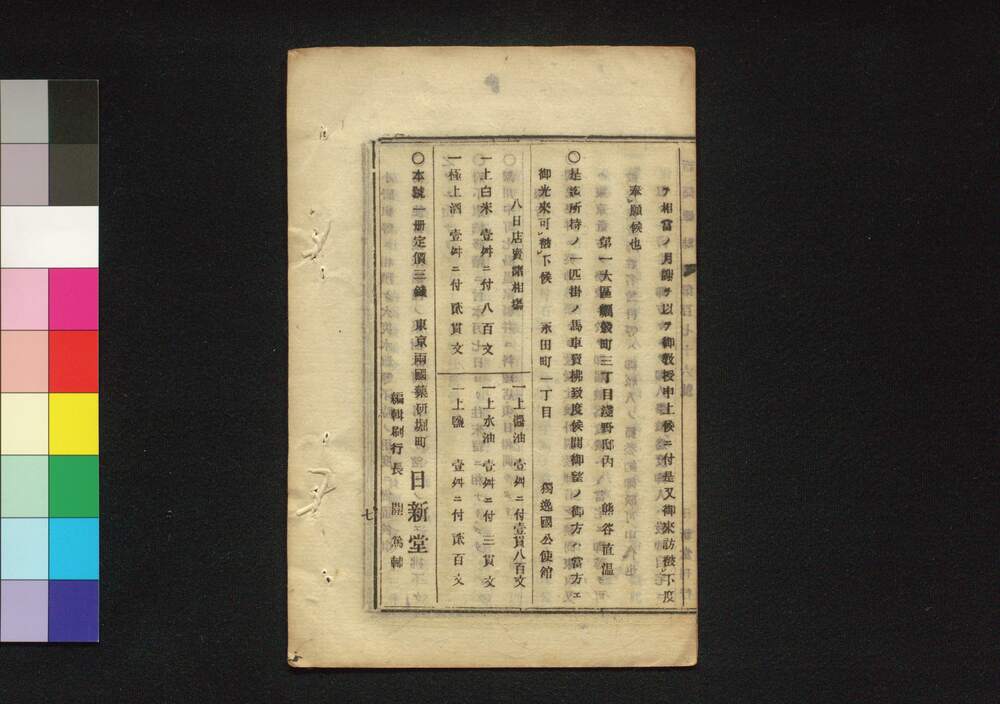 ヲ相當ノ月謝ヲ以テ御敎授申上候ニ付是又御來訪被下度
奉願候也
第一大區糀町三丁目淺野邸內 熊谷直溫
〇是迄所持ノ一匹掛ノ馬車賣拂致度候間御望ノ御方ハ當方エ
御光來可被下候 永田町一丁目 獨逸國公使館
八日店賣諸相塲
一上白米 壹舛ニ付 八百文
一極上酒 壹舛ニ付 貮貫文
一上醬油 壹舛ニ付壹貫八百文
一上水油 壹舛ニ付 三貫文
一上鹽 壹舛ニ付 貮百文
〇本號一册定價三錢 東京兩國藥研堀町 日新堂
編輯刷行長 關 爲輔
七